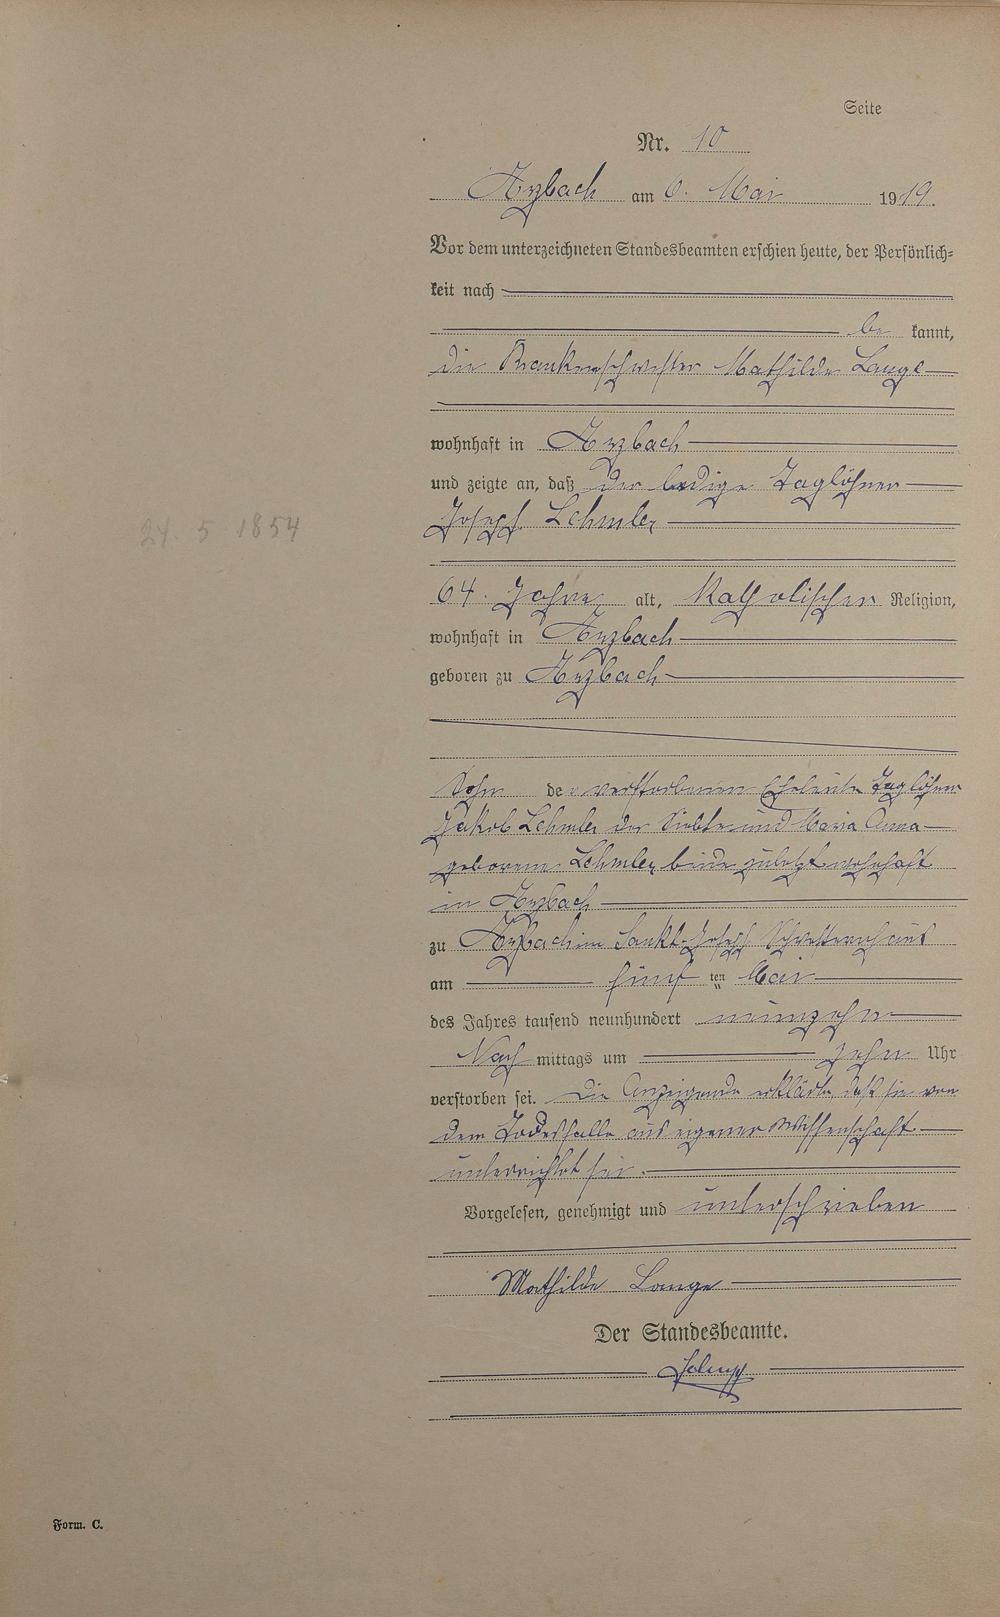 Seite
Nr. 10
Arzbach am 6. Mai 1919.
Vor dem unterzeichneten Standesbeamten erschien heute, der Persönlich-
keit nach
be kannt,
die Krankenschwester Mathilde Lange
wohnhaft in Arzbach
und zeigte an, daß der ledige Taglöhner
Joseph Lehmler
24. 5 1854
64. Jahre alt, katholischer Religion,
wohnhaft in Arzbach
geboren zu Arzbach
Sohn der verstorbenen Eheleute Taglöhner
Jakob Lehmler der Siebte und Maria Anna
geborene Lehmler, beide zuletzt wohnhaft
in Arzbach
zu Arzbach im Sankt-Joseph Schwesternhaus
am fünf ten Mai
des Jahres tausend neunhundert neunzehn
Nach mittags um zehn Uhr
verstorben sei. Die Anzeigende erklärte, daß sie von
dem Todesfalle aus eigener Wissenschaft
unterrichtet sei.
Vorgelesen, genehmigt und unterschrieben
Mathilde Lange
Der Standesbeamte.
Form. C.